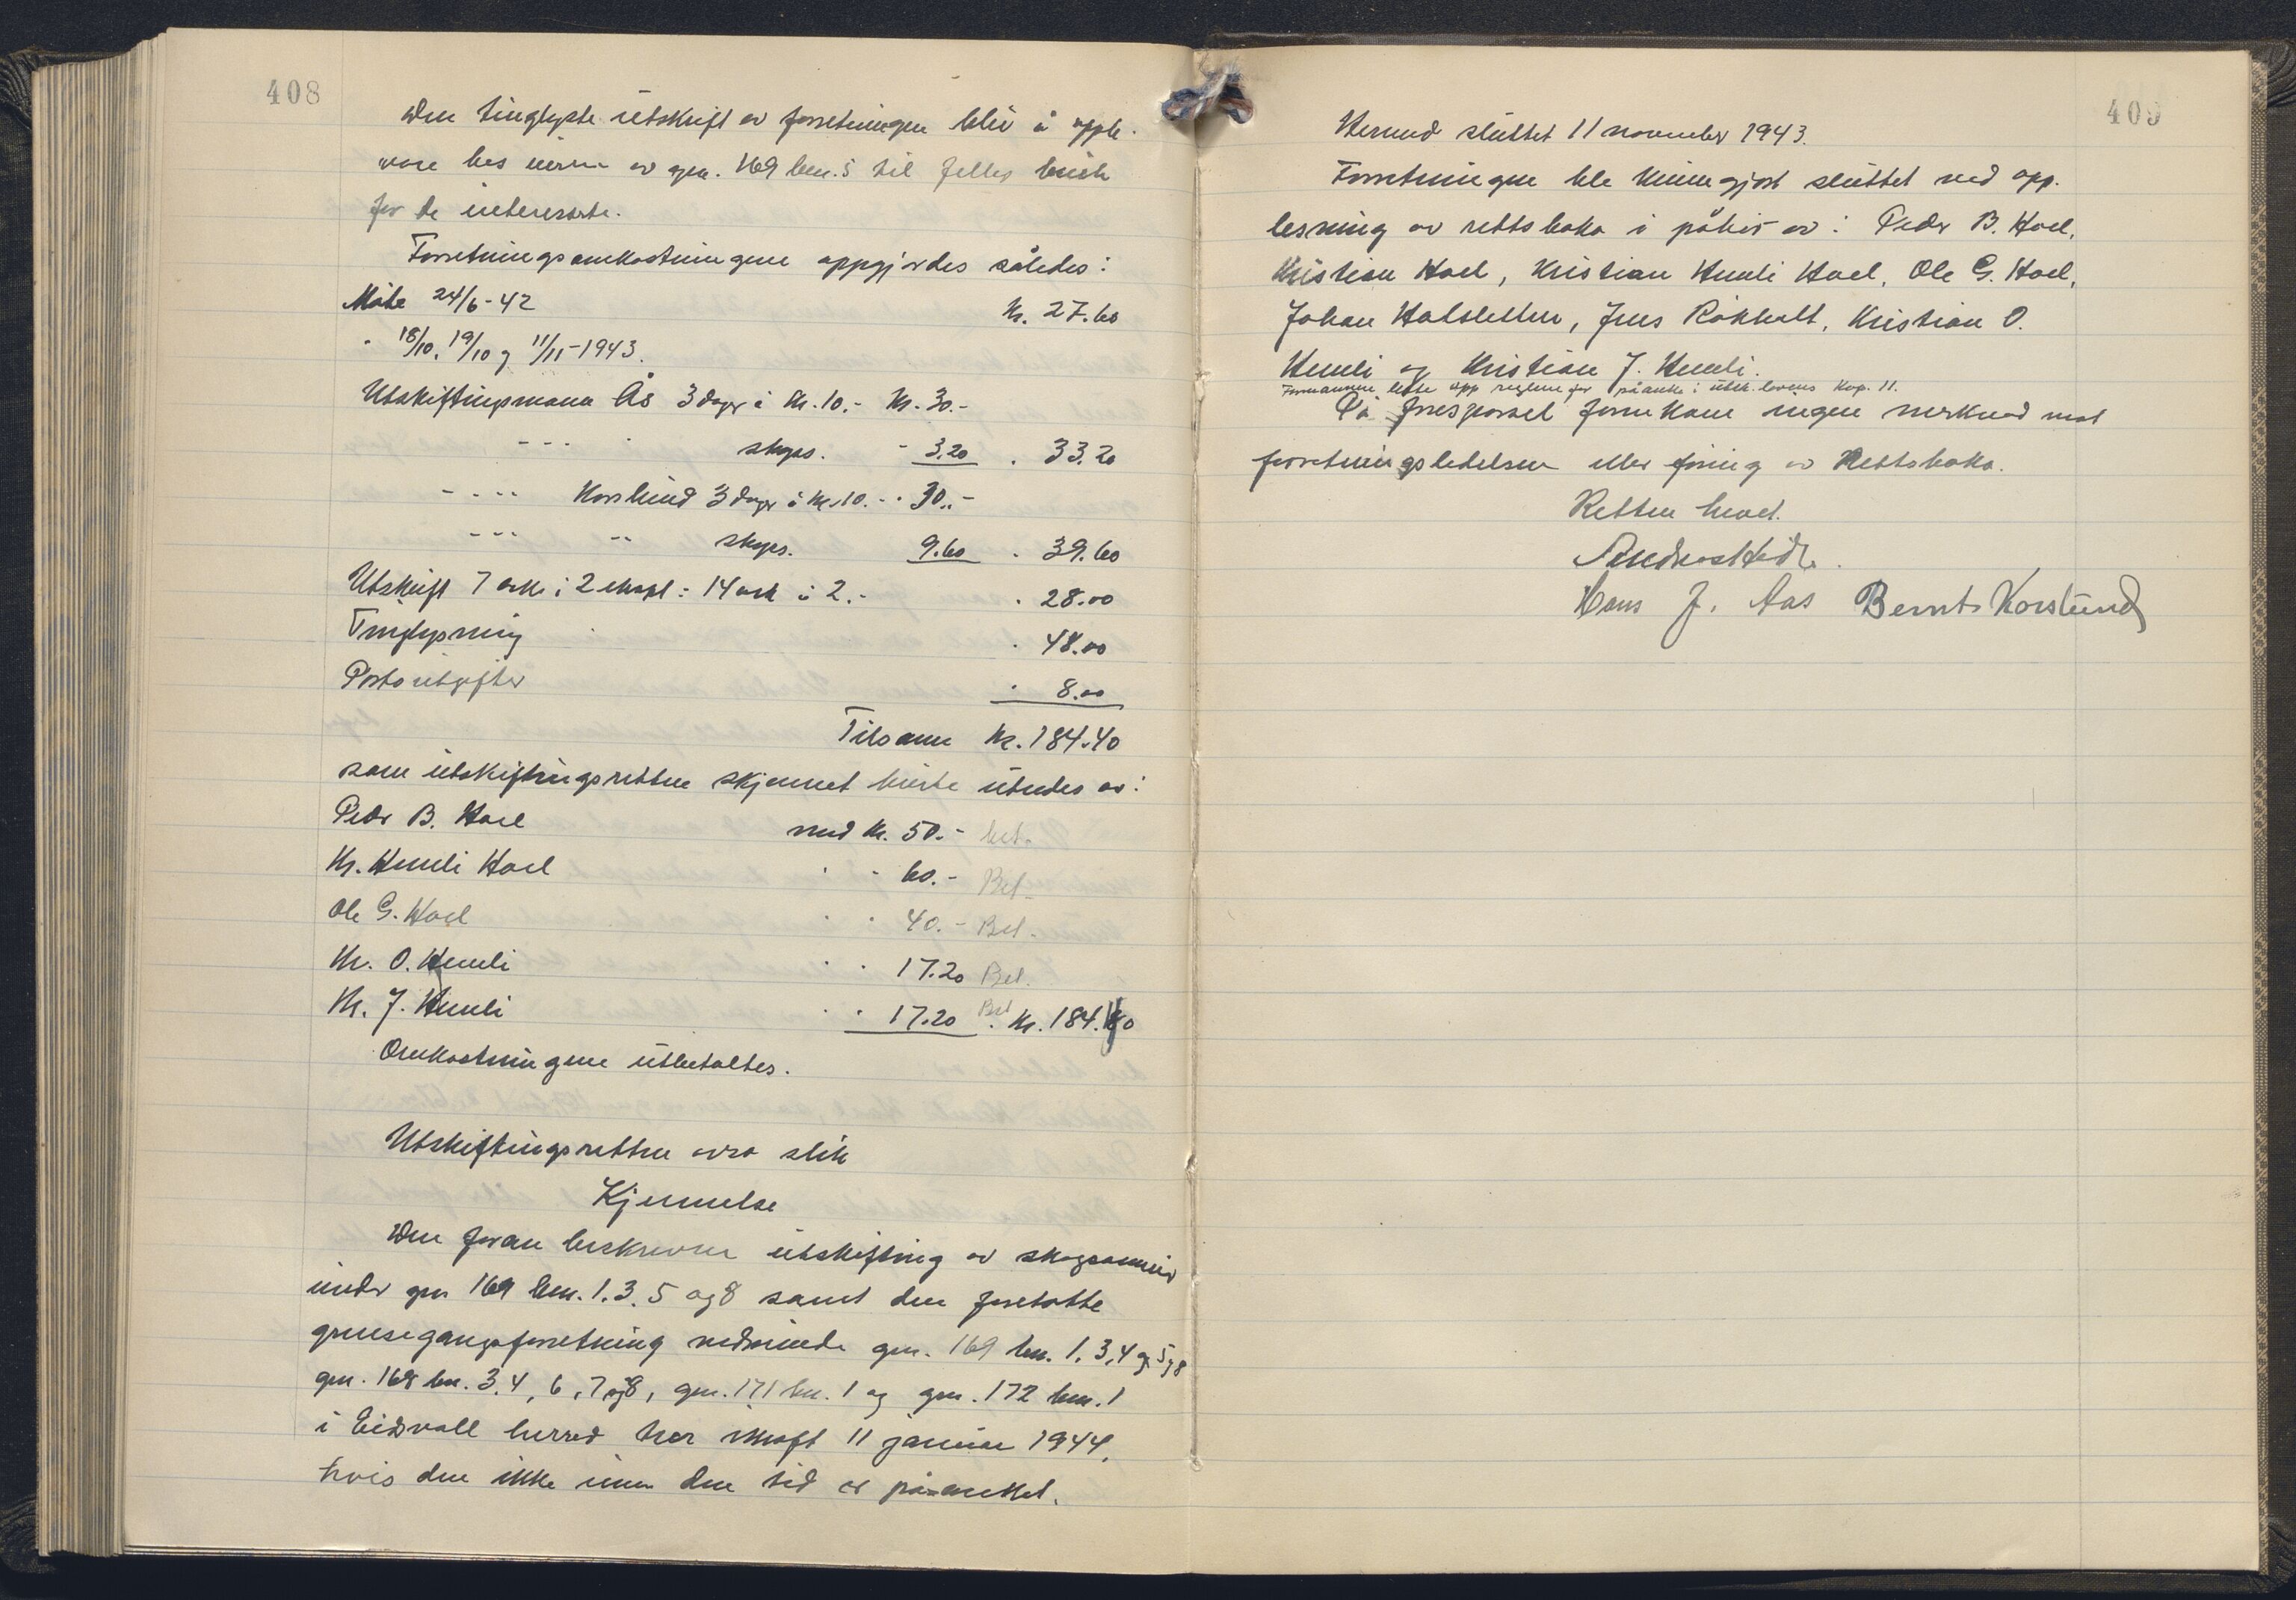 408
Den tinglyste utskrift av forretningen blir å oppbe-
vare hos eieren av gnr. 169 bnr. 5 til felles bruk
for de interesserte.
Forretningsomkostningene oppgjordes således:
Møte 24/6-42 kr. 27.60
" 18/10, 19/10 og 11/11-1943.
Utskiftingsmann Ås 3 dager à kr. 10.- kr. 30.-
--- " skyss. - 3.20 . 33.20
---- Korslund 3 dager à kr. 10. - . 30.-
--- -- skyss. 9.60 . 39.60
Utskrift 7 ark i 2 ekspl = 14 ark à 2.- . 28.00
Tinglysning . 48.00
Portoutgifter . 8.00
Tilsamm kr. 184.40
som utskiftingsretten skjønnet burde utredes av:
Peder B. Hoel med kr. 50.- bet.
Kr. Hemli Hoel " - 60.- Bet.
Ole G. Hoel " " 40.- Bet.
Kr. O. Hemli " " 17.20 Bet.
Kr. J. Hemli " " 17.20 Bet . kr. 184.40
Omkostningene utbetaltes.
Utskiftingsretten avsa slik
Kjennelse
Den foran beskrevne utskifting av skogsameie
under gnr 169 bnr. 1. 3. 5 og 8 samt den foretatte
grensegangsforretning vedrørende gnr. 169 bnr. 1, 3, 4 og 5 og 8
gnr. 168 bnr. 3, 4, 6, 7 og 8, gnr. 171 bnr. 1 og gnr. 172 bnr. 1
i Eidsvoll herred har ikraft 11 januar 1944,
hvis den ikke innen den tid er på-anket.
409
Dermed sluttet 11 november 1943.
Forretningen ble kunngjort sluttet ved opp-
lesning av rettsboka i påhør av: Peder B. Hoel,
Kristian Hoel, Kristian Hemli Hoel, Ole G. Hoel,
Johan Habsletten, Jens Råkholt, Kristian O.
Hemli og Kristian J. Hemli.
Formannen leste opp reglene for påanke i utsk.lovens Kap. 11.
På forespørsel fremkom ingen merknad mot
forretningsledelsen eller føring av Rettsboka.
Retten hevet.
Hans J. Aas Bernt Korslund